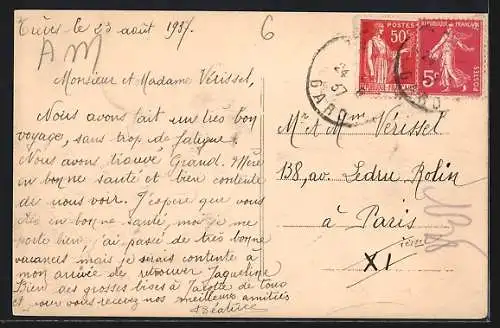 Trèves le 23 août 1937.
AM
6
Monsieur et Madame Vérissel,
Nous avons fait un très bon
voyage, sans trop de fatigue.
Nous avons trouvé Grand-Mère
en bonne santé et bien contente
de nous voir. J'espère que vous
êtes en bonne santé, moi je me
porte bien, j'ai passé de très bonne
vacances mais je serais contente à
mon arrivée de retrouver Jaqueline
Bien des grosses bises à de tous
et vous recevez nos meilleurs amitiés
Béatrice
POSTES
50c
REPUBLIQUE FRANÇAISE
5c
POSTES
24
37
GARD
GARD
Mr et Mme Vérissel
138, av. Ledru Rolin
à Paris
XI ième